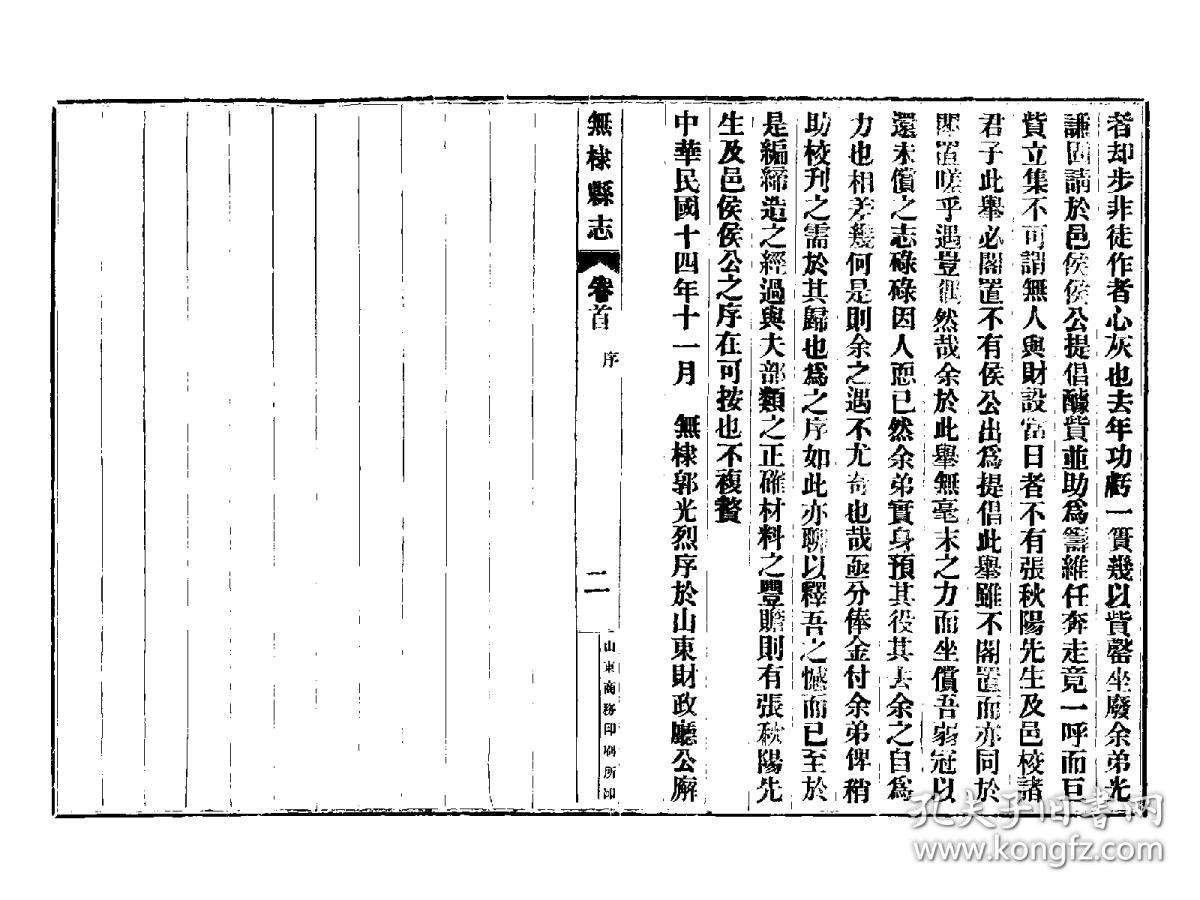 者却步非徒作者心灰也去年功虧一簣幾以貲罄坐廢余弟光
謙固請於邑侯侯公提倡醵貲並助爲籌維任奔走竟一呼而巨
貲立集不可謂無人與財設當日者不有張秋陽先生及邑校諸
君子此舉必閣置不有侯公出爲提倡此舉雖不閣置而亦同於
閣置嗟乎遇豈偶然哉余於此舉無毫末之力而坐償吾弱冠以
還未償之志碌碌因人恧已然余弟實身預其役其去余之自爲
力也相差幾何是則余之遇不尤奇也哉亟分俸金付余弟俾稍
助校刋之需於其歸也爲之序如此亦聊以釋吾之憾而已至於
是編締造之經過與夫部類之正確材料之豐贍則有張秋陽先
生及邑侯侯公之序在可按也不複贅
中華民國十四年十一月 無棣郭光烈序於山東財政廳公廨
無棣縣志 卷首 序 二 山東商務印刷所印
孔夫子旧书网
www.kongfz.com